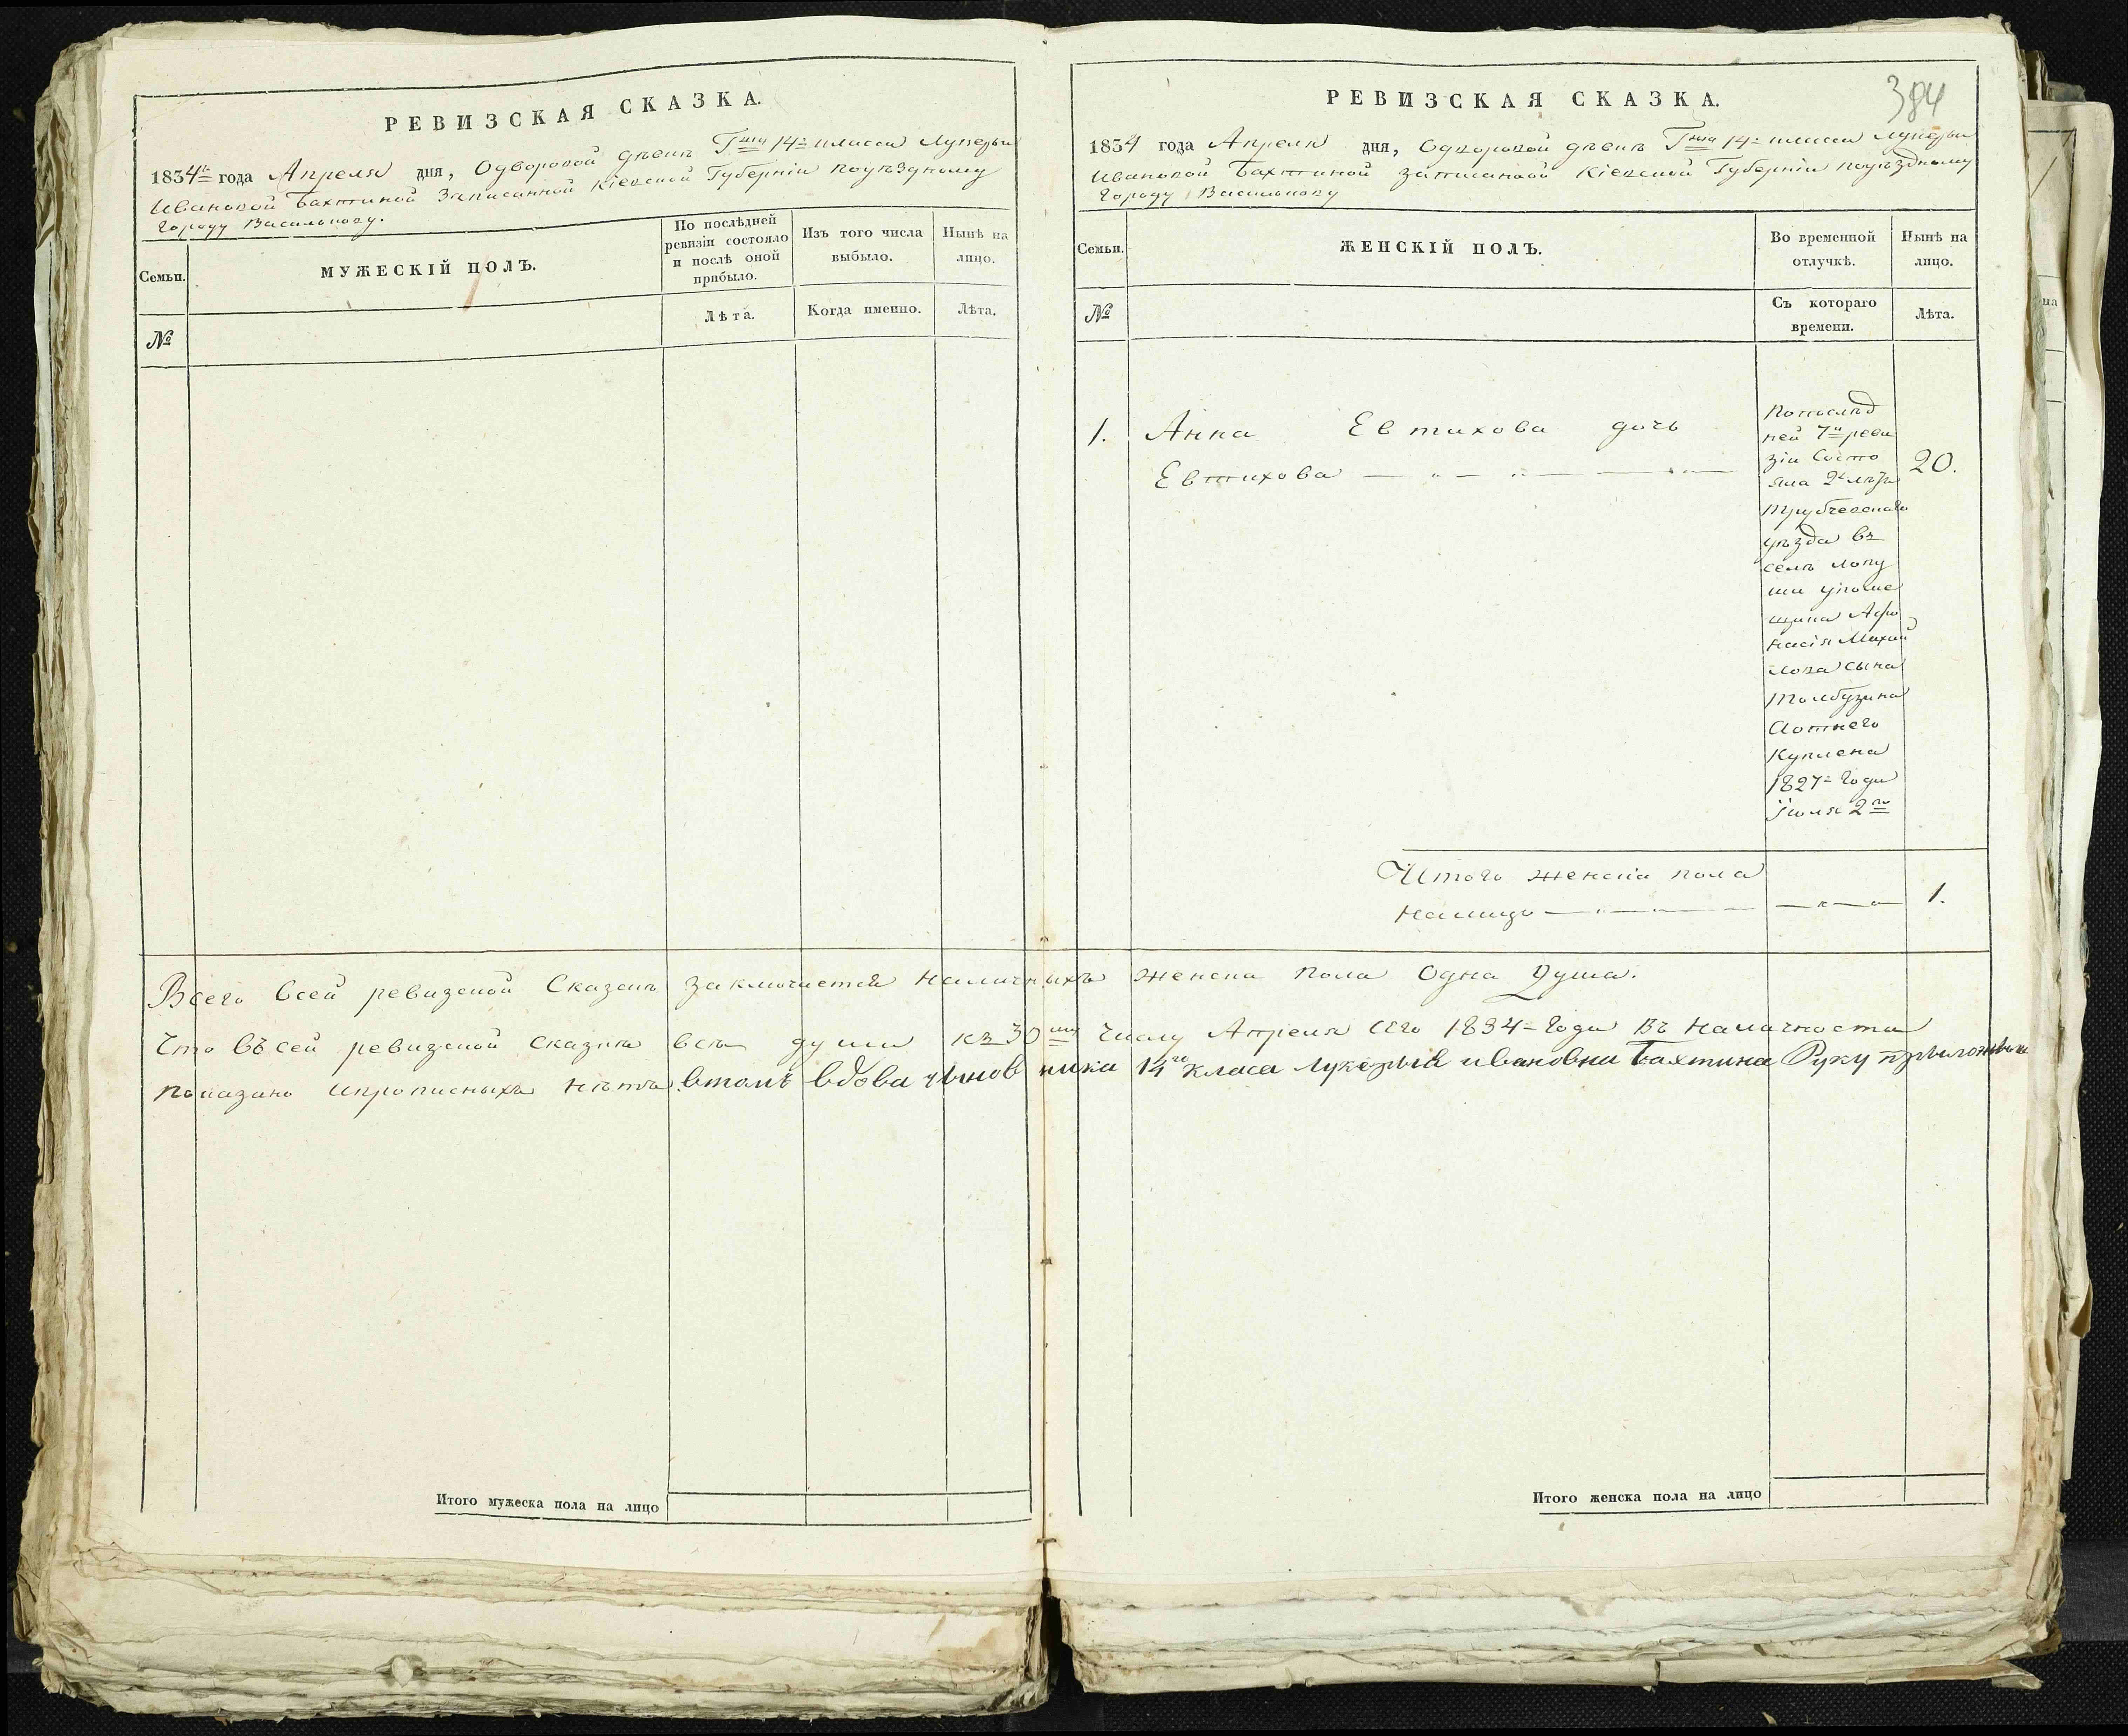 РЕВИЗСКАЯ СКАЗКА.
1834 года Апреля дня, О дворовой девкѣ 14 класса Лукерьи
Ивановой Бахтиной Записанной Кiевской Губернiи поуѣздному
Городу Василькову.
Семьи.
МУЖЕСКIЙ ПОЛЪ.
По послѣдней
ревизiи состояло
и послѣ оной
прибыло.
Изъ того числа
выбыло.
Нынѣ на
лицо.
№
Лѣта.
Когда именно.
Лѣта.
384
РЕВИЗСКАЯ СКАЗКА.
1834 года Апреля дня, О дворовой девкѣ 14 класса Лукерьи
Ивановой Бахтиной записанной Кiевской Губернiи поуѣздному
Городу Василькову
Семьи.
ЖЕНСКIЙ ПОЛЪ.
Во временной
отлучкѣ.
Нынѣ на
лицо.
№
Съ котораго
времени.
Лѣта.
1. Анна Евтихова дочь
Евтихова
20.
Попослѣд
ней 7й реви
зiи Состо
яла
Трубчевскаго
уѣзда въ
селѣ Лопу
ши упоме
щика Афо
насiя Михай
лова сына
Толбузина
Аотнего
Куплена
1827 Года
Iюля 2го
Итого женска пола
налицо 1.
Всего всей ревизской Сказкѣ заключается наличныхъ женска пола Одна Душа.
Что въсей ревизской сказкѣ всѣ души къ 30му числу Апреля сего 1834 Года Въ наличности
показаны ипрописныхъ нѣтъ втомъ вдова чиновника 14го класа Лукерья ивановна Бахтина Руку приложила
Итого мужеска пола на лицо
Итого женска пола на лицо